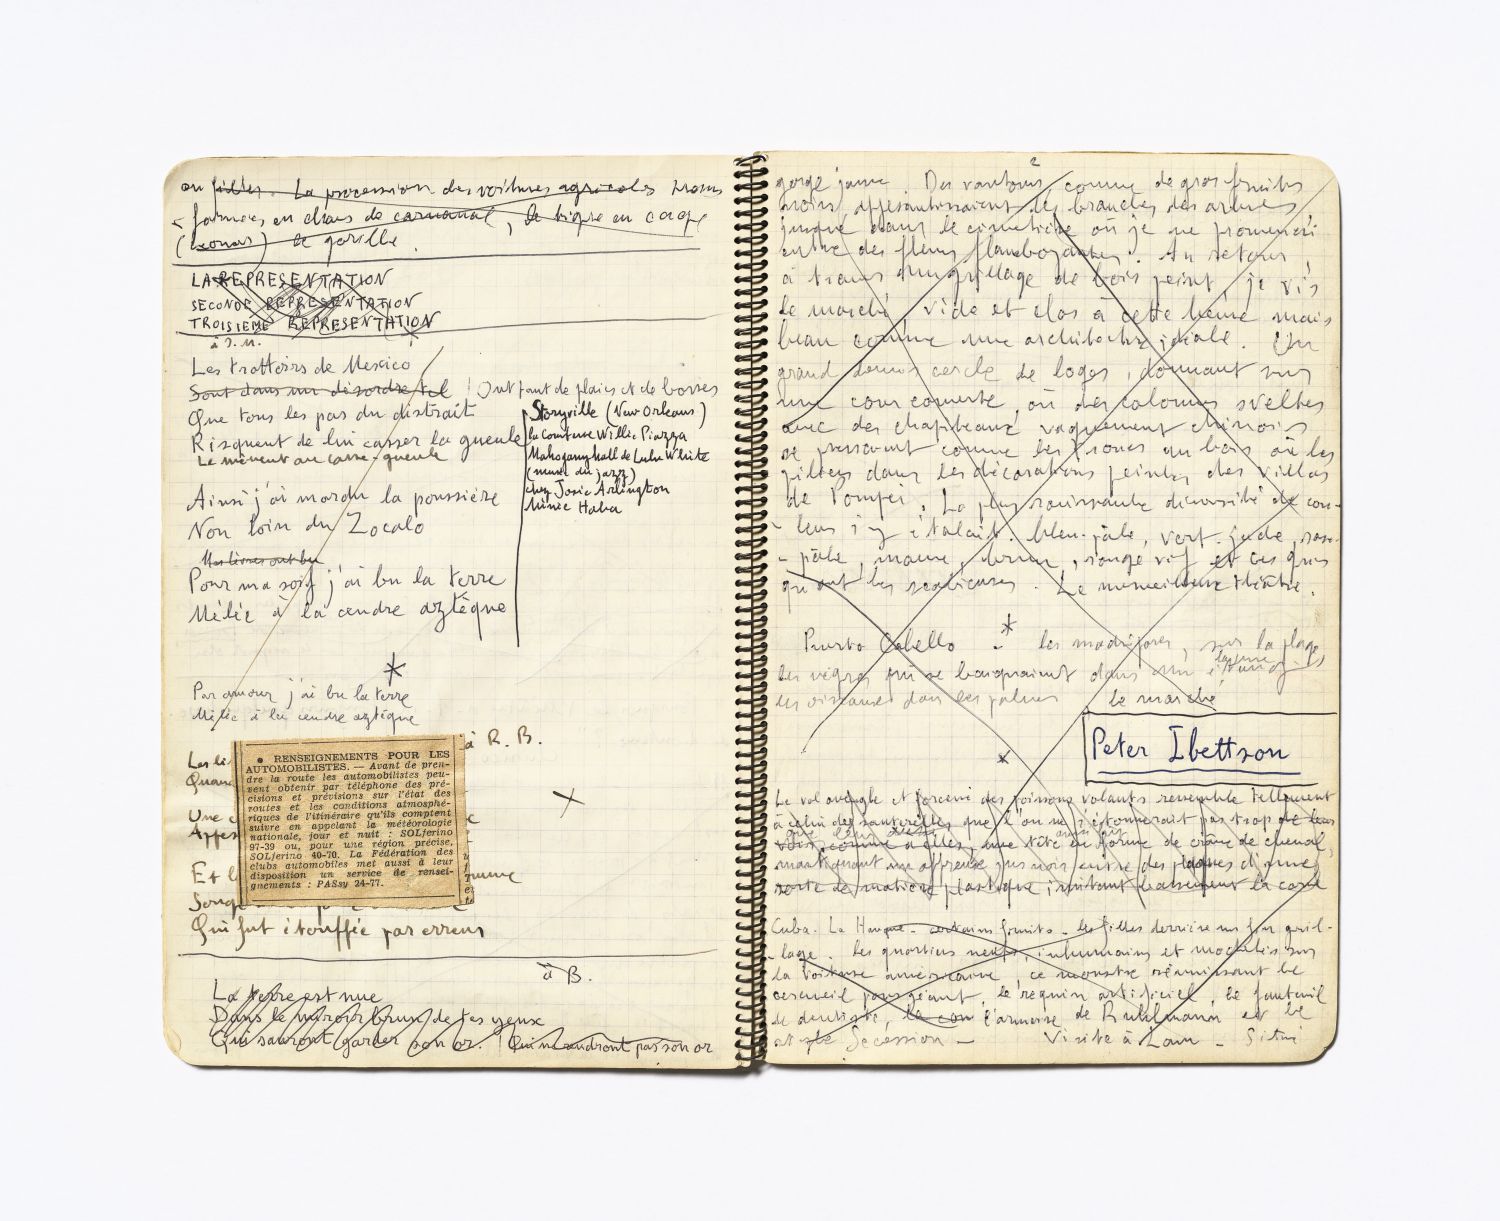 ou filles. La procession des voitures agricoles trans
- formées en chars de carnaval, le tigre en cage
( ) le gorille.
LA REPRESENTATION
SECONDE REPRESENTATION
TROISIEME REPRESENTATION
Les trottoirs de Mexico
Sont dans un désordre tel ! Ont tant de plaies et de bosses
Que tous les pas du distrait
Risquent de lui casser la gueule
Le mènent au casse-gueule
Storyville (New Orleans)
la Comtesse Willie Piazza
Mahogany hall de Lulu White
(musée du jazz)
chez Josie Arlington
Minie Haha
Ainsi j'ai mordu la poussière
Non loin du Zocalo
Mes lèvres ont bu
Pour ma soif j'ai bu la terre
Mêlée à la cendre aztèque
*
Par amour j'ai bu la terre
Mêlée à la cendre aztèque
à R. B.
Les lè
Quan
Une c
Et l
Song
Qui fut étouffée par erreur
• RENSEIGNEMENTS POUR LES
AUTOMOBILISTES. — Avant de pren-
dre la route les automobilistes peu-
vent obtenir par téléphone des pré-
cisions et prévisions sur l'état des
routes et les conditions atmosphé-
riques de l'itinéraire qu'ils comptent
suivre en appelant la météorologie
nationale, jour et nuit : SOLferino
97-39 ou, pour une région précise,
SOLferino 40-70. La Fédération des
clubs automobiles met aussi à leur
disposition un service de rensei-
gnements : PASsy 24-77.
à B.
La terre est nue
Dans le miroir brun de tes yeux
Qui sauront garder son or. Qui ne vendront pas son or
2
gorge jaune. Des vautours, comme de gros fruits
noirs appesantissaient les branches des arbres
jusque dans le cimetière où je me promenai
entre des fleurs flamboyantes. Au retour,
à travers un grillage de bois peint, je vis
le marché vide et clos à cette heure mais
beau comme une architecture idéale. Un
grand demi cercle de loges, donnant sur
une cour couverte, où des colonnes sveltes
avec des chapiteaux vaguement chinois
se pressaient comme les troncs au bois où les
piliers dans les décorations peintes des villas
de Pompéi. La plus ravissante diversité de cou-
- leurs s'y étalait. bleu-pâle, vert-jade, rose-
- pâle, mauve, brun, rouge vif et ces gris
qu'ont les scabieuses. Le merveilleux théâtre.
*
Puerto Cabello - les madrépores, sur la plage,
les nègres qui se baignaient dans un étang
lagune
les oiseaux dans les palmes le marché
Peter Ibettson
Le vol aveugle et forcené des poissons volants ressemble tellement
à celui des sauterelles que l'on ne s'étonnerait pas trop de leur
voir, comme à elles, une tête en forme de crâne de cheval,
mastiquant un affreux jus noir entre des plaques d'une
sorte de matière plastique imitant bassement la corne
Cuba. La Havane - certains fruits - les filles derrière un fin gril-
- lage. Les quartiers neufs inhumains et modelés sur
la voiture américaine, ce monstre réunissant le
cercueil pour géant, le requin artificiel, le fauteuil
de dentiste, l'armoire de Ruhlmann et le
style Sécession - Visite à Lam -